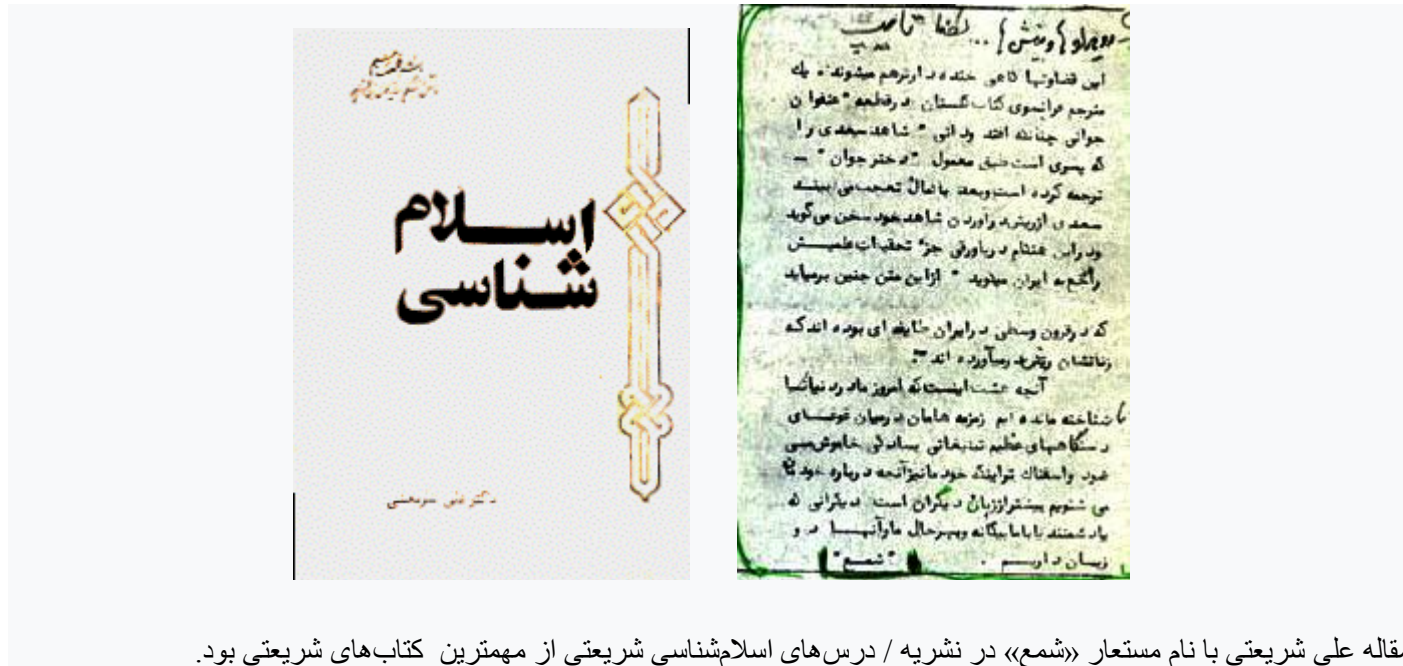 اسلام
شناسی
دکتر علی شریعتی
این قضاوتها گاهی خنده دارترهم میشوند، یك
مترجم فرانسوی کتاب گلستان درقطعه "عنفوان
جوانی چنانکه افتد ودانی" شاهد سعدی را
که پسری است طبق معمول "دختر جوان"
ترجمه کرده است وبعد باکمال تعجب می بیند
سعدی ازریش درآوردن شاهد خود سخن می گوید
ودراین هنگام درپاورقی جزء تحقیقات علمیش
راجع به ایران میگوید "ازاین متن چنین برمیاید
که درقرون وسطی درایران طایفه ای بوده اندکه
زنانشان ریش درمیآورده اند".
آنچه هست اینست که امروز مادردنیاناشناخته
مانده ایم زمزمه هامان درمیان غوغای
دستگاههای عظیم تبلیغاتی بسادگی خاموش می
شود واسفناك تراینکه خودمانیزآنچه درباره خود
می شنویم بیشتراززبان دیگران است دیگرانی که
یادشمنند یاباما بیگانه وبهرحال ماوآنها دو
زبان داریم . "شمع"
مقاله علی شریعتی با نام مستعار «شمع» در نشریه / درس‌های اسلام‌شناسی شریعتی از مهمترین کتاب‌های شریعتی بود.